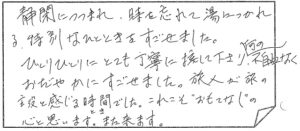 静閑につつまれ、時を忘れて湯につかれ
る特別なひとときをすごせました。
ひとりひとりにとても丁寧に接して下さり、何の不自由なく
おだやかにすごせました。旅人が旅の
と感じる時間でした。これこそ"おもてなし"の
心と思います。また来ます。